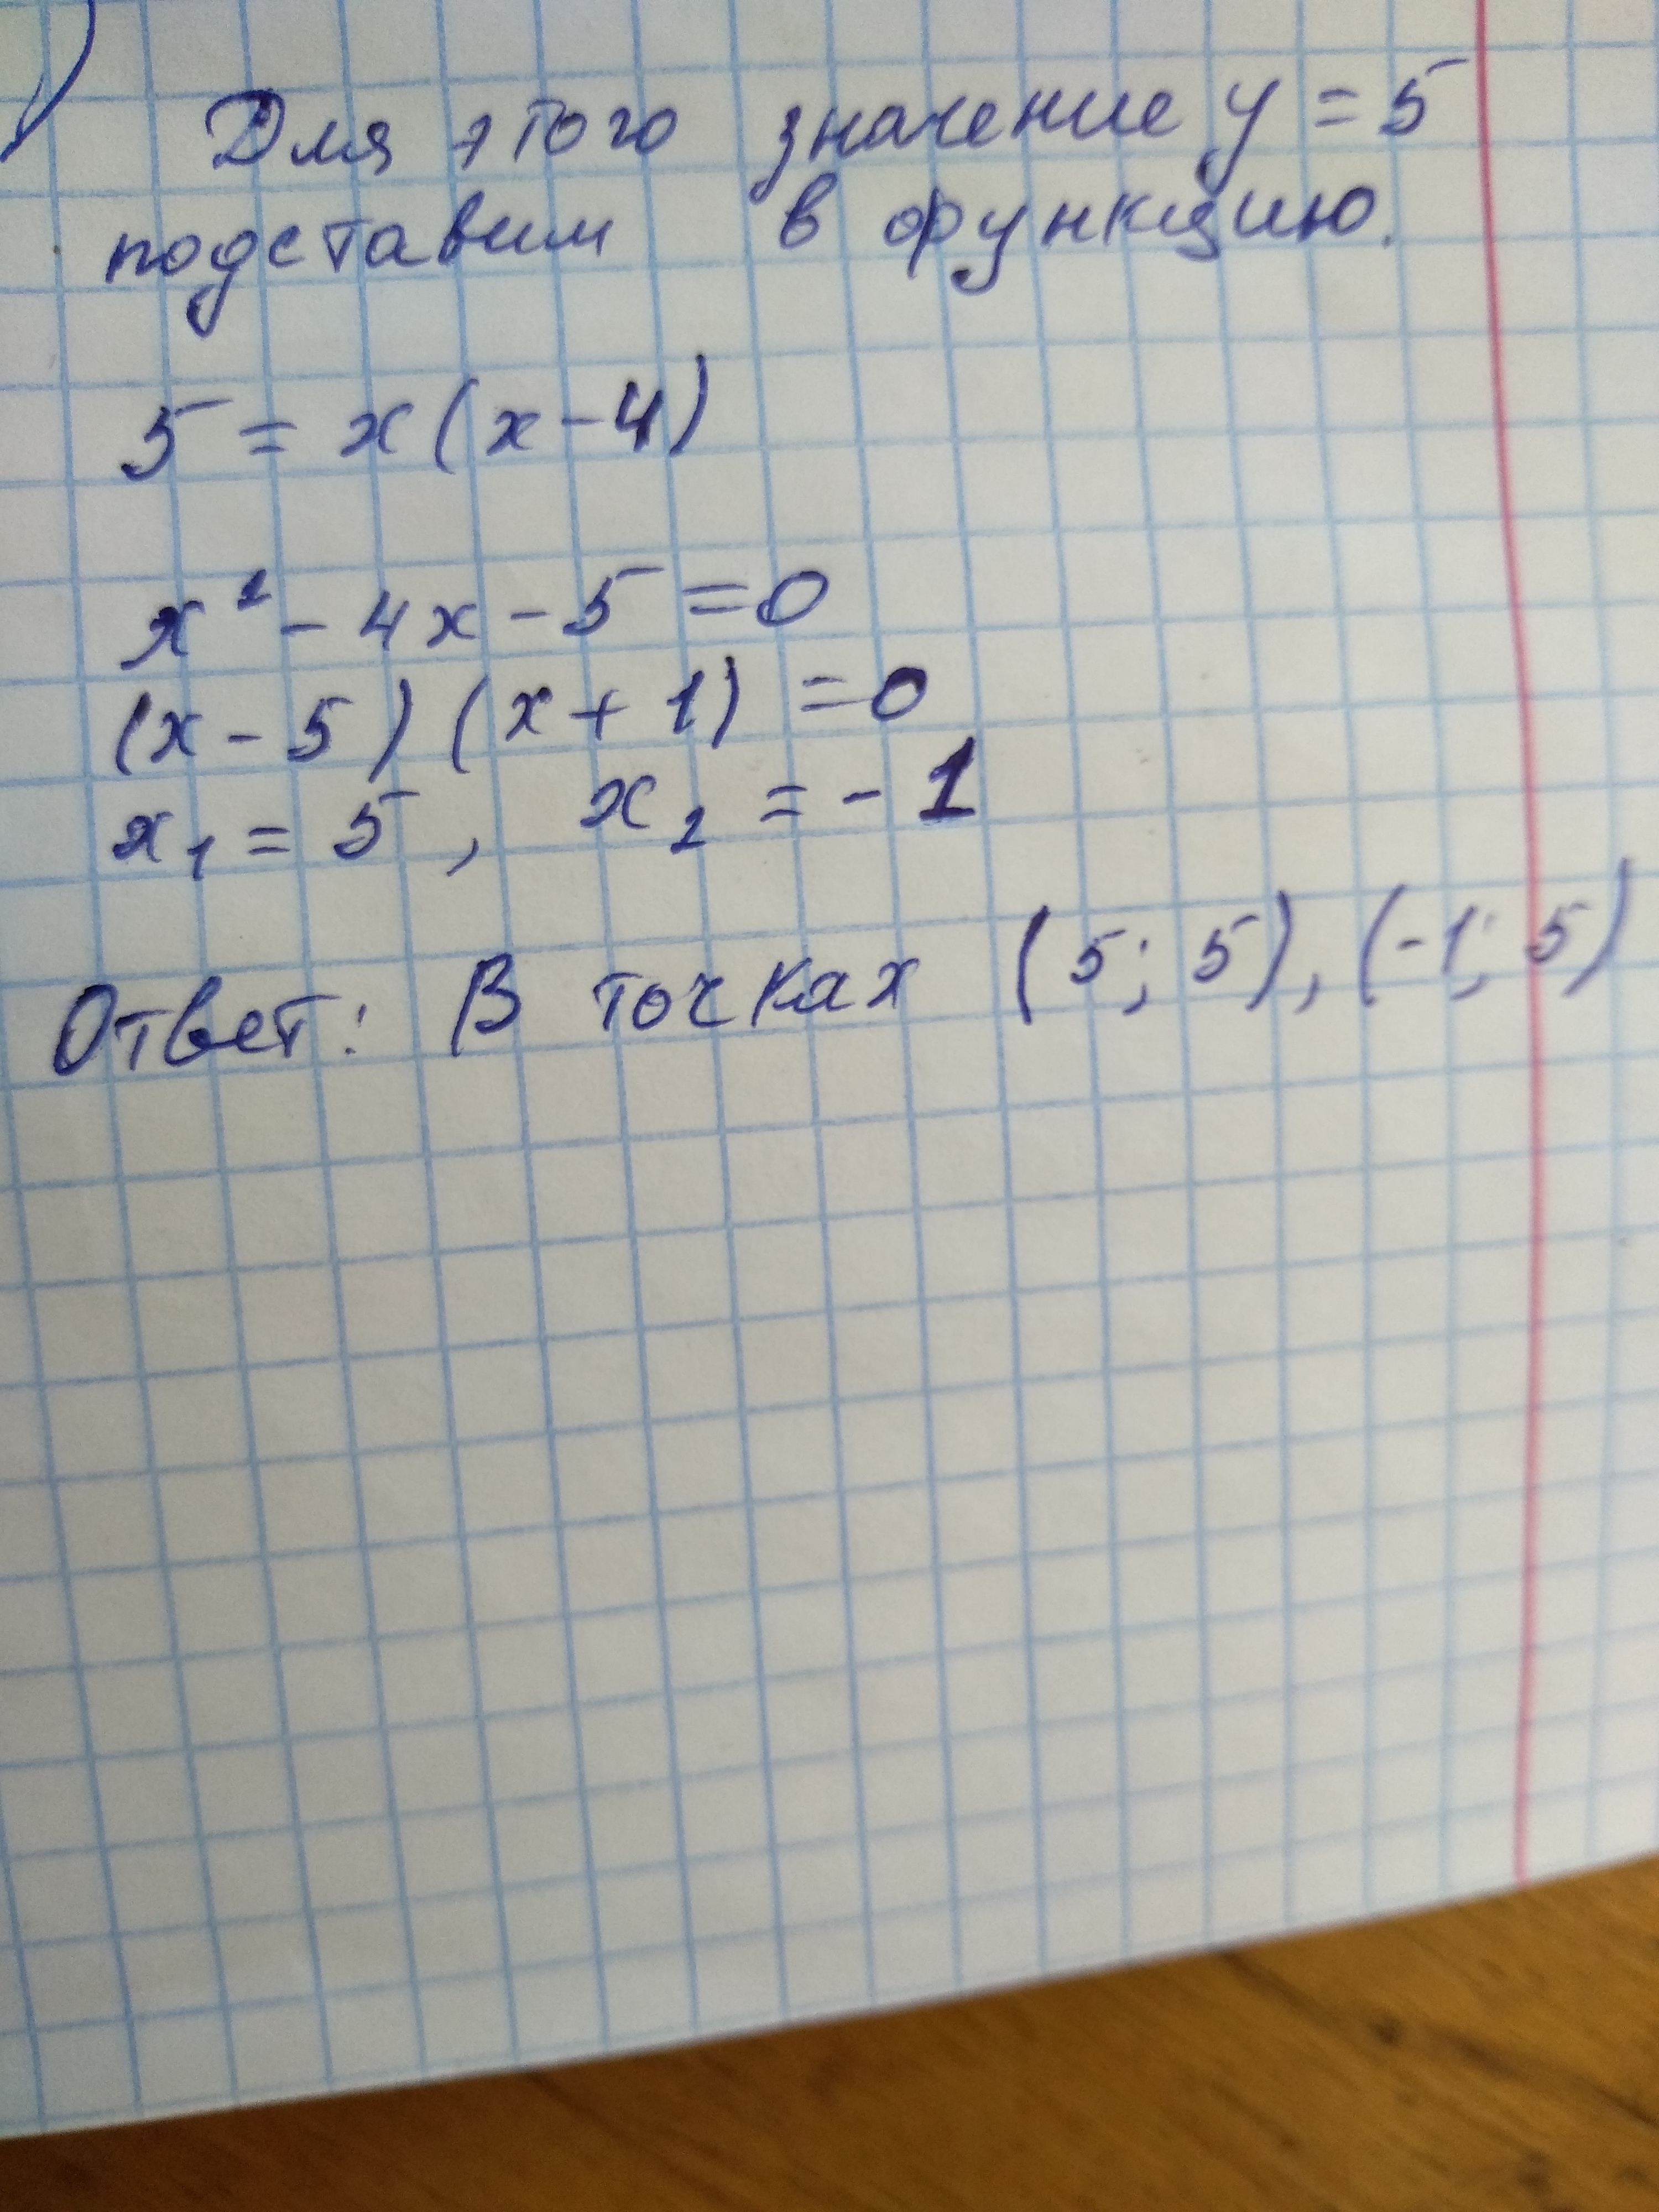 Для этого значение y = 5
подставим в функцию.
5 = x(x-4)
x² - 4x - 5 = 0
(x - 5) (x + 1) = 0
x₁ = 5, x₂ = - 1
Ответ: В точках (5; 5), (-1; 5)